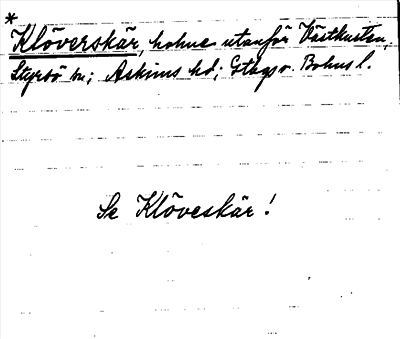 *
Klöverskär, holme utanför Västkusten,
Styrsö sn; Askims hd; Gtbgs o. Bohus l.
Se Klöveskär!